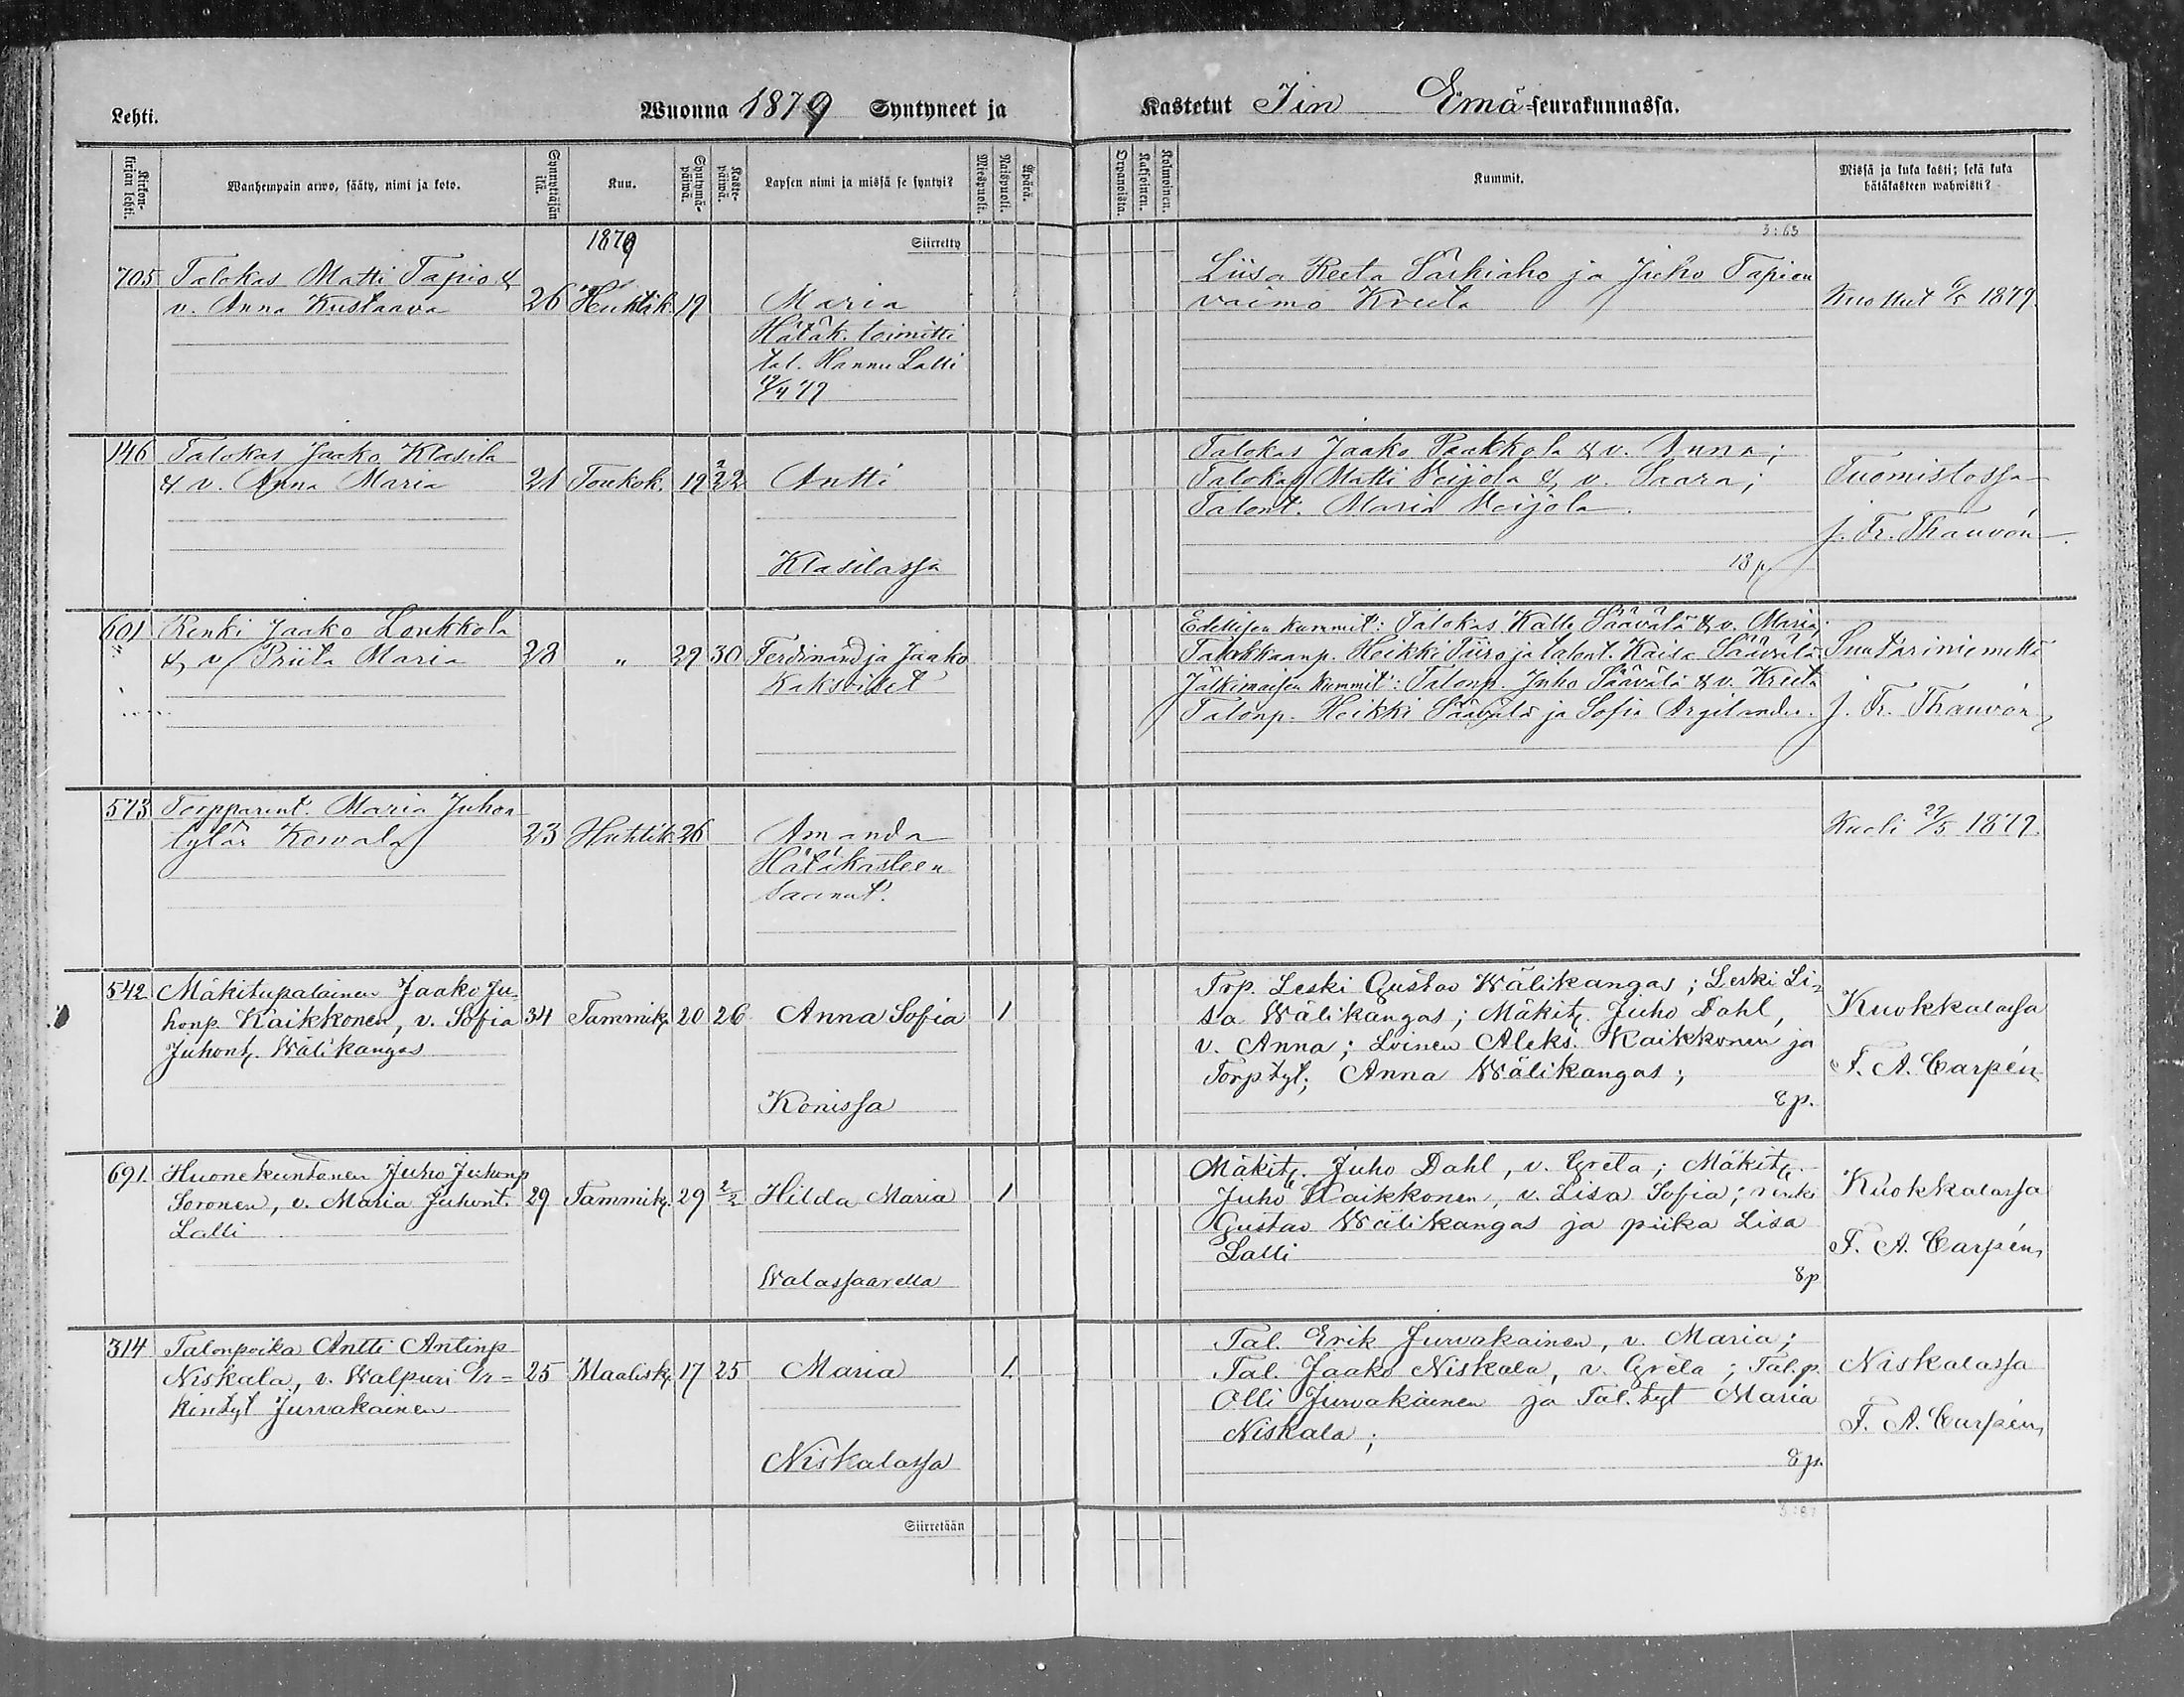 Lehti.
Wuonna 1879 Syntyneet ja
Kastetut Iin Emä-seurakunnassa.
Kirkonkirjan lehti.
Wanhempain arwo, sääty, nimi ja koto.
Synnyttäjän ikä.
Kuu.
Syntymäpäiwä.
Kastepäiwä.
Lapsen nimi ja missä se syntyi?
Miespuoli.
Naispuoli.
Äpärä.
Orpanoista.
Kaksoinen.
Kolmoinen.
Kummit.
Missä ja kuka kasti; sekä kuka
hätäkasteen wahwisti?
1879
Siirretty
705 Talokas Matti Tapio &
v. Anna Kustaava 26 Huhtik. 19 Maria
Hätäk. toimitti
tal. Hannu Lalli
19/4 79
Liisa Reeta Särkiaho ja Juho Tapion
vaimo Kreeta
Kuollut 6/5 1879.
146 Talokas Jaako Klasila
& v. Anna Maria 21 Toukok. 19 22 Antti
Klasilassa
Talokas Jaako Paakkola & v. Anna;
Talokas Matti Veijola & v. Saara;
Talont. Maria Veijola.
13 p
Tuomistossa
J. Fr. Thauvón
601 Renki Jaako Loukkola
& v. Priita Maria 28 " 29 30 Ferdinand ja Jaako
Kaksoiset
Edellisen kummit: Talokas Kalle Säävälä & v. Maria;
Talokkaanp. Heikki Tiiro ja talont. Kaisa Säävälä
Jälkimaisen kummit: Talonp. Juho Säävälä & v. Kreeta
Talonp. Heikki Säävälä ja Sofia Argilander.
Santariniemellä
J. Fr. Thauvón
573 Torpparint. Maria Juhon
tytär Kowala 23 Huhtik. 26 Amanda
Hätäkasteen
saanut.
Kuoli 22/5 1879.
542 Mäkitupalainen Jaako Ju-
honp. Kaikkonen, v. Sofia 34 Tammik. 20 26 Anna Sofia 1
Juhont. Wälikangas
Konissa
Trp. Leski Gustav Wälikangas; Leski Li-
sa Wälikangas; Mäkit. Juho Dahl,
v. Anna; Loinen Aleks. Kaikkonen ja
Torp tyt; Anna Wälikangas;
8 p.
Kuokkalassa
F. A. Carpén
691. Huonekuntanen Juho Juhonp
Soronen, v. Maria Juhont. 29 Tammik. 29 2/2 Hilda Maria 1
Lalli
Walassaarella
Mäkit. Juho Dahl, v. Greta; Mäkit.
Juho Kaikkonen, v. Lisa Sofia; renki
Gustav Wälikangas ja piika Lisa
Lalli
8 p
Kuokkalassa
F. A. Carpén
314 Talonpoika Antti Antinp
Niskala, v. Walpuri Er=
kintyt Jurvakainen 25 Maalisk. 17 25 Maria 1
Niskalassa
Tal. Erik Jurvakainen, v. Maria;
Tal. Jaako Niskala, v. Greta; Tal.p.
Olli Jurvakainen ja Tal. tyt Maria
Niskala;
8 p.
Niskalassa
F. A. Carpén
Siirretään